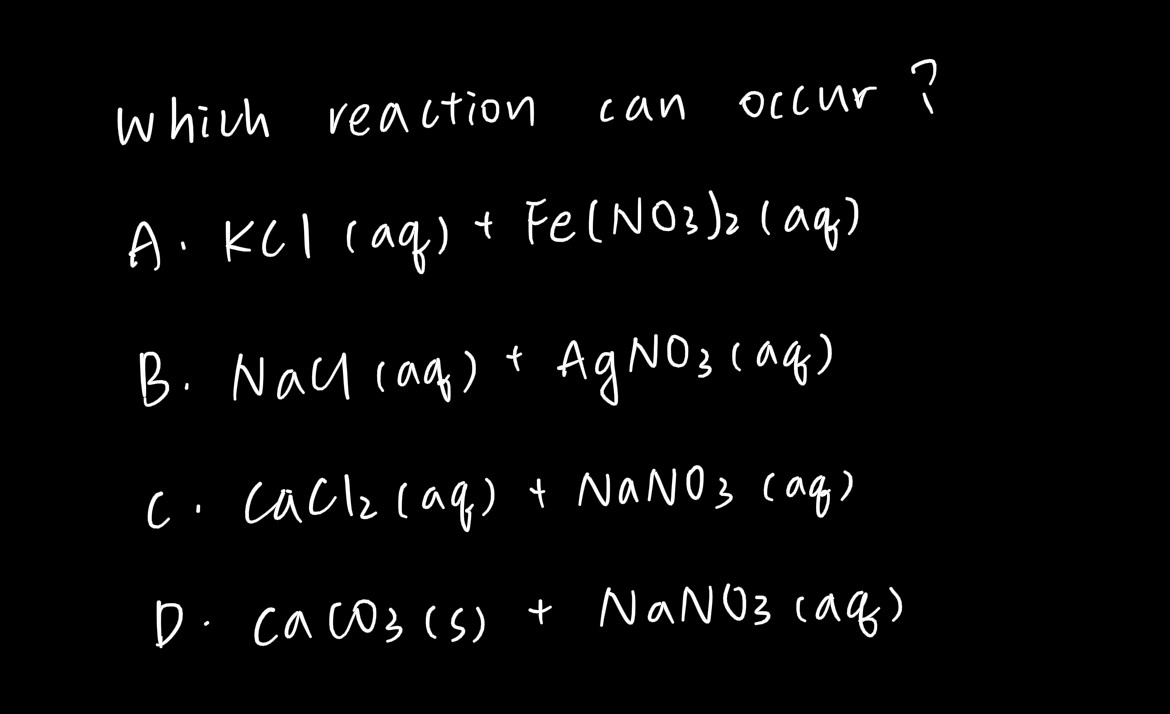 Which reaction can occur ?
A. KCl (aq) + Fe(NO3)2 (aq)
B. NaCl (aq) + AgNO3 (aq)
C. CaCl2 (aq) + NaNO3 (aq)
D. CaCO3 (s) + NaNO3 (aq)